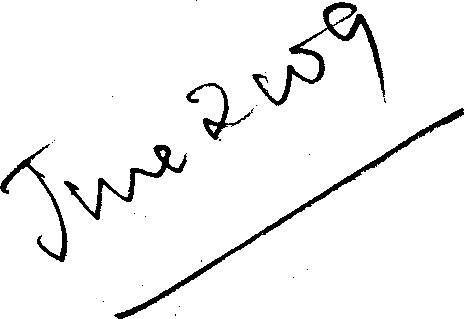 June 2009